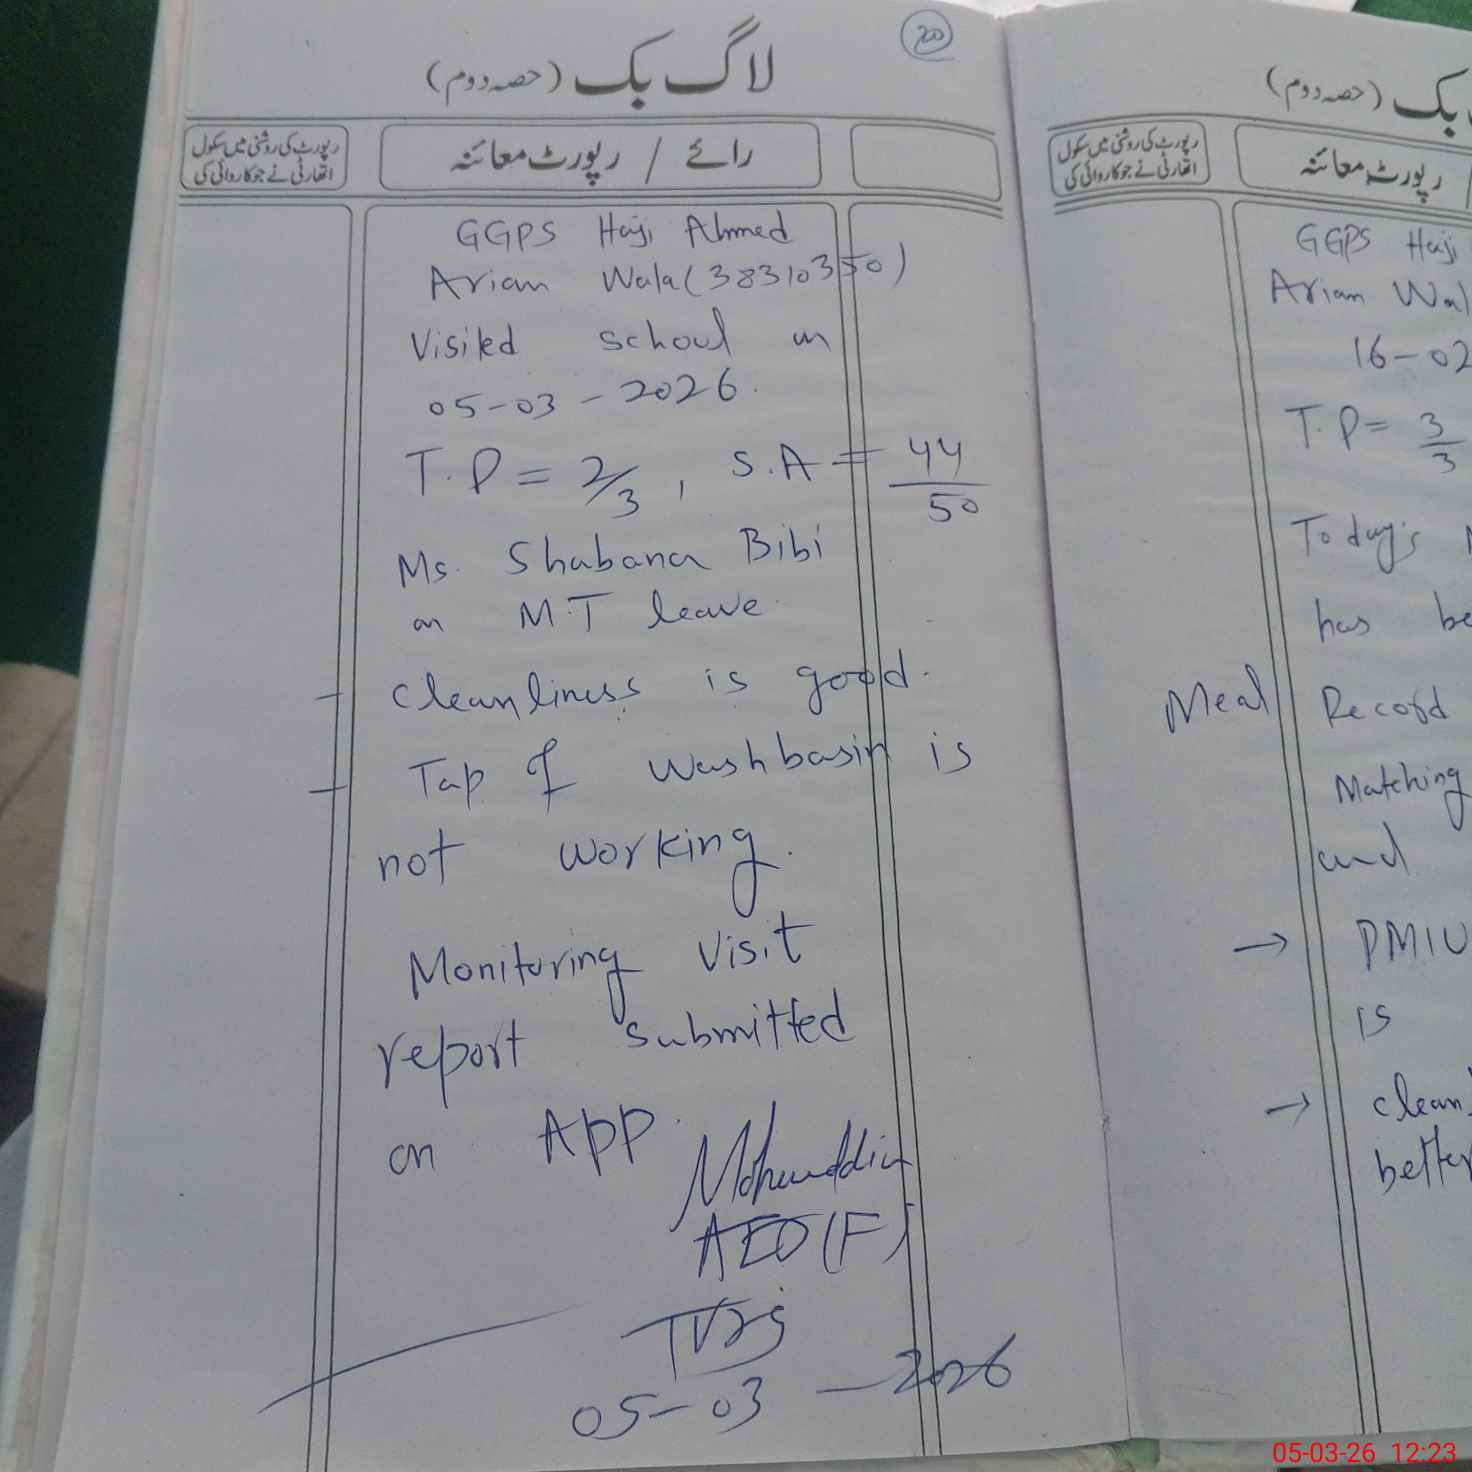 20
لاگ بک (حصہ دوم)
رائے / رپورٹ معائنہ
رپورٹ کی روشنی میں سکول
اتھارٹی نے جو کاروائی کی
GGPS Haji Ahmed
Arian Wala (38310350)
Visited school on
05-03-2026.
T.P = 2/3, S.A = 44/50
Ms. Shabana Bibi
on M.T leave.
- cleanliness is good.
- Tap of washbasin is
not working.
Monitoring Visit
report submitted
on App.
AEO (F)
05-03-2026
بک (حصہ دوم)
رپورٹ معائنہ
رپورٹ کی روشنی میں سکول
اتھارٹی نے جو کاروائی کی
GGPS Haji
Arian Wal
16-02
T.P = 3/3
Today's
has be
Meal Record
Matching
and
→ PMIU
is
→ clean
better
05-03-26 12:23